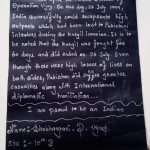 Operation Vijay. On this day, 26 July 1999,
India successfully could recapture high
outposts which had been lost to Pakistani
intruders during the Kargil invasion. It is to
be noted that the Kargil war fought for
60 days, and did ended on 26 July. Even
though there were high losses of lives on
both sides, Pakistan did suffer greater
casualties along with International
diplomatic humiliation...
I am proud to be an Indian
Name:-
Std :- 10th